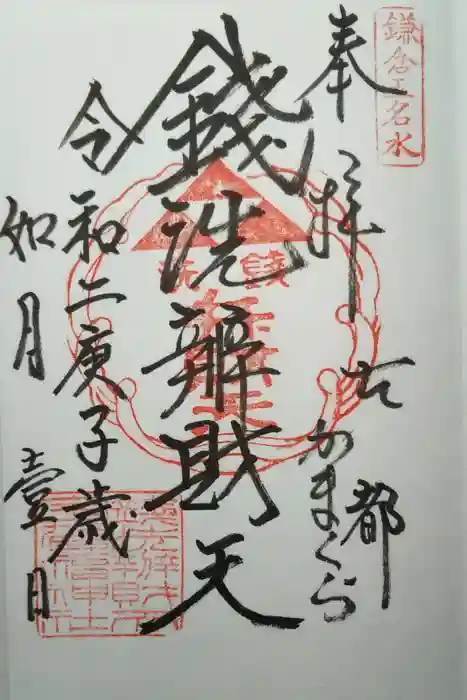 鎌倉五名水
奉拝 古都かまくら
銭洗辨財天
令和二庚子歳
如月壹日